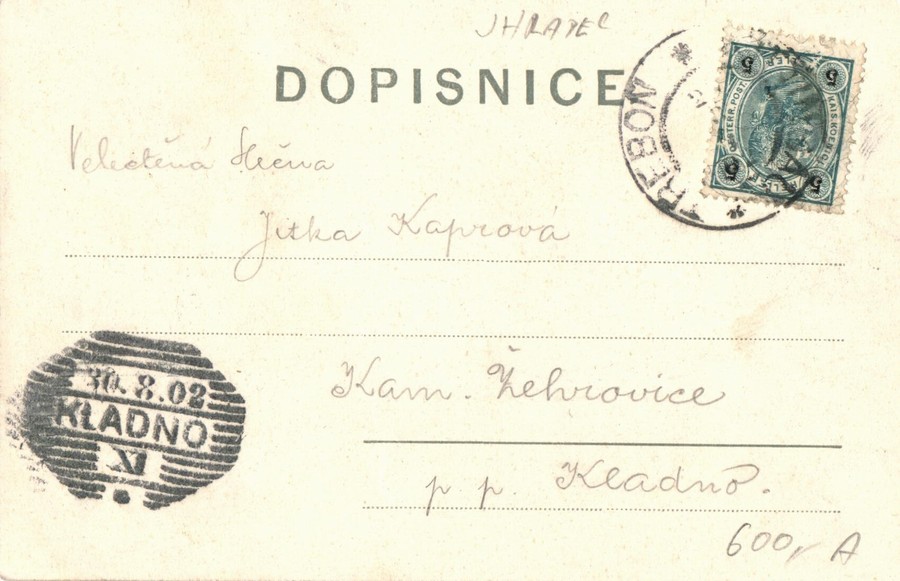 JHRADEC
DOPISNICE
TŘEBOŇ
5 5
KAIS. KOENIGL.
OESTERR. POST.
5 5
Velectěná slečna
Jitka Kaprová
30.8.02
KLADNO
XI
Kam. Žehrovice
p. p. Kladno.
600,- A